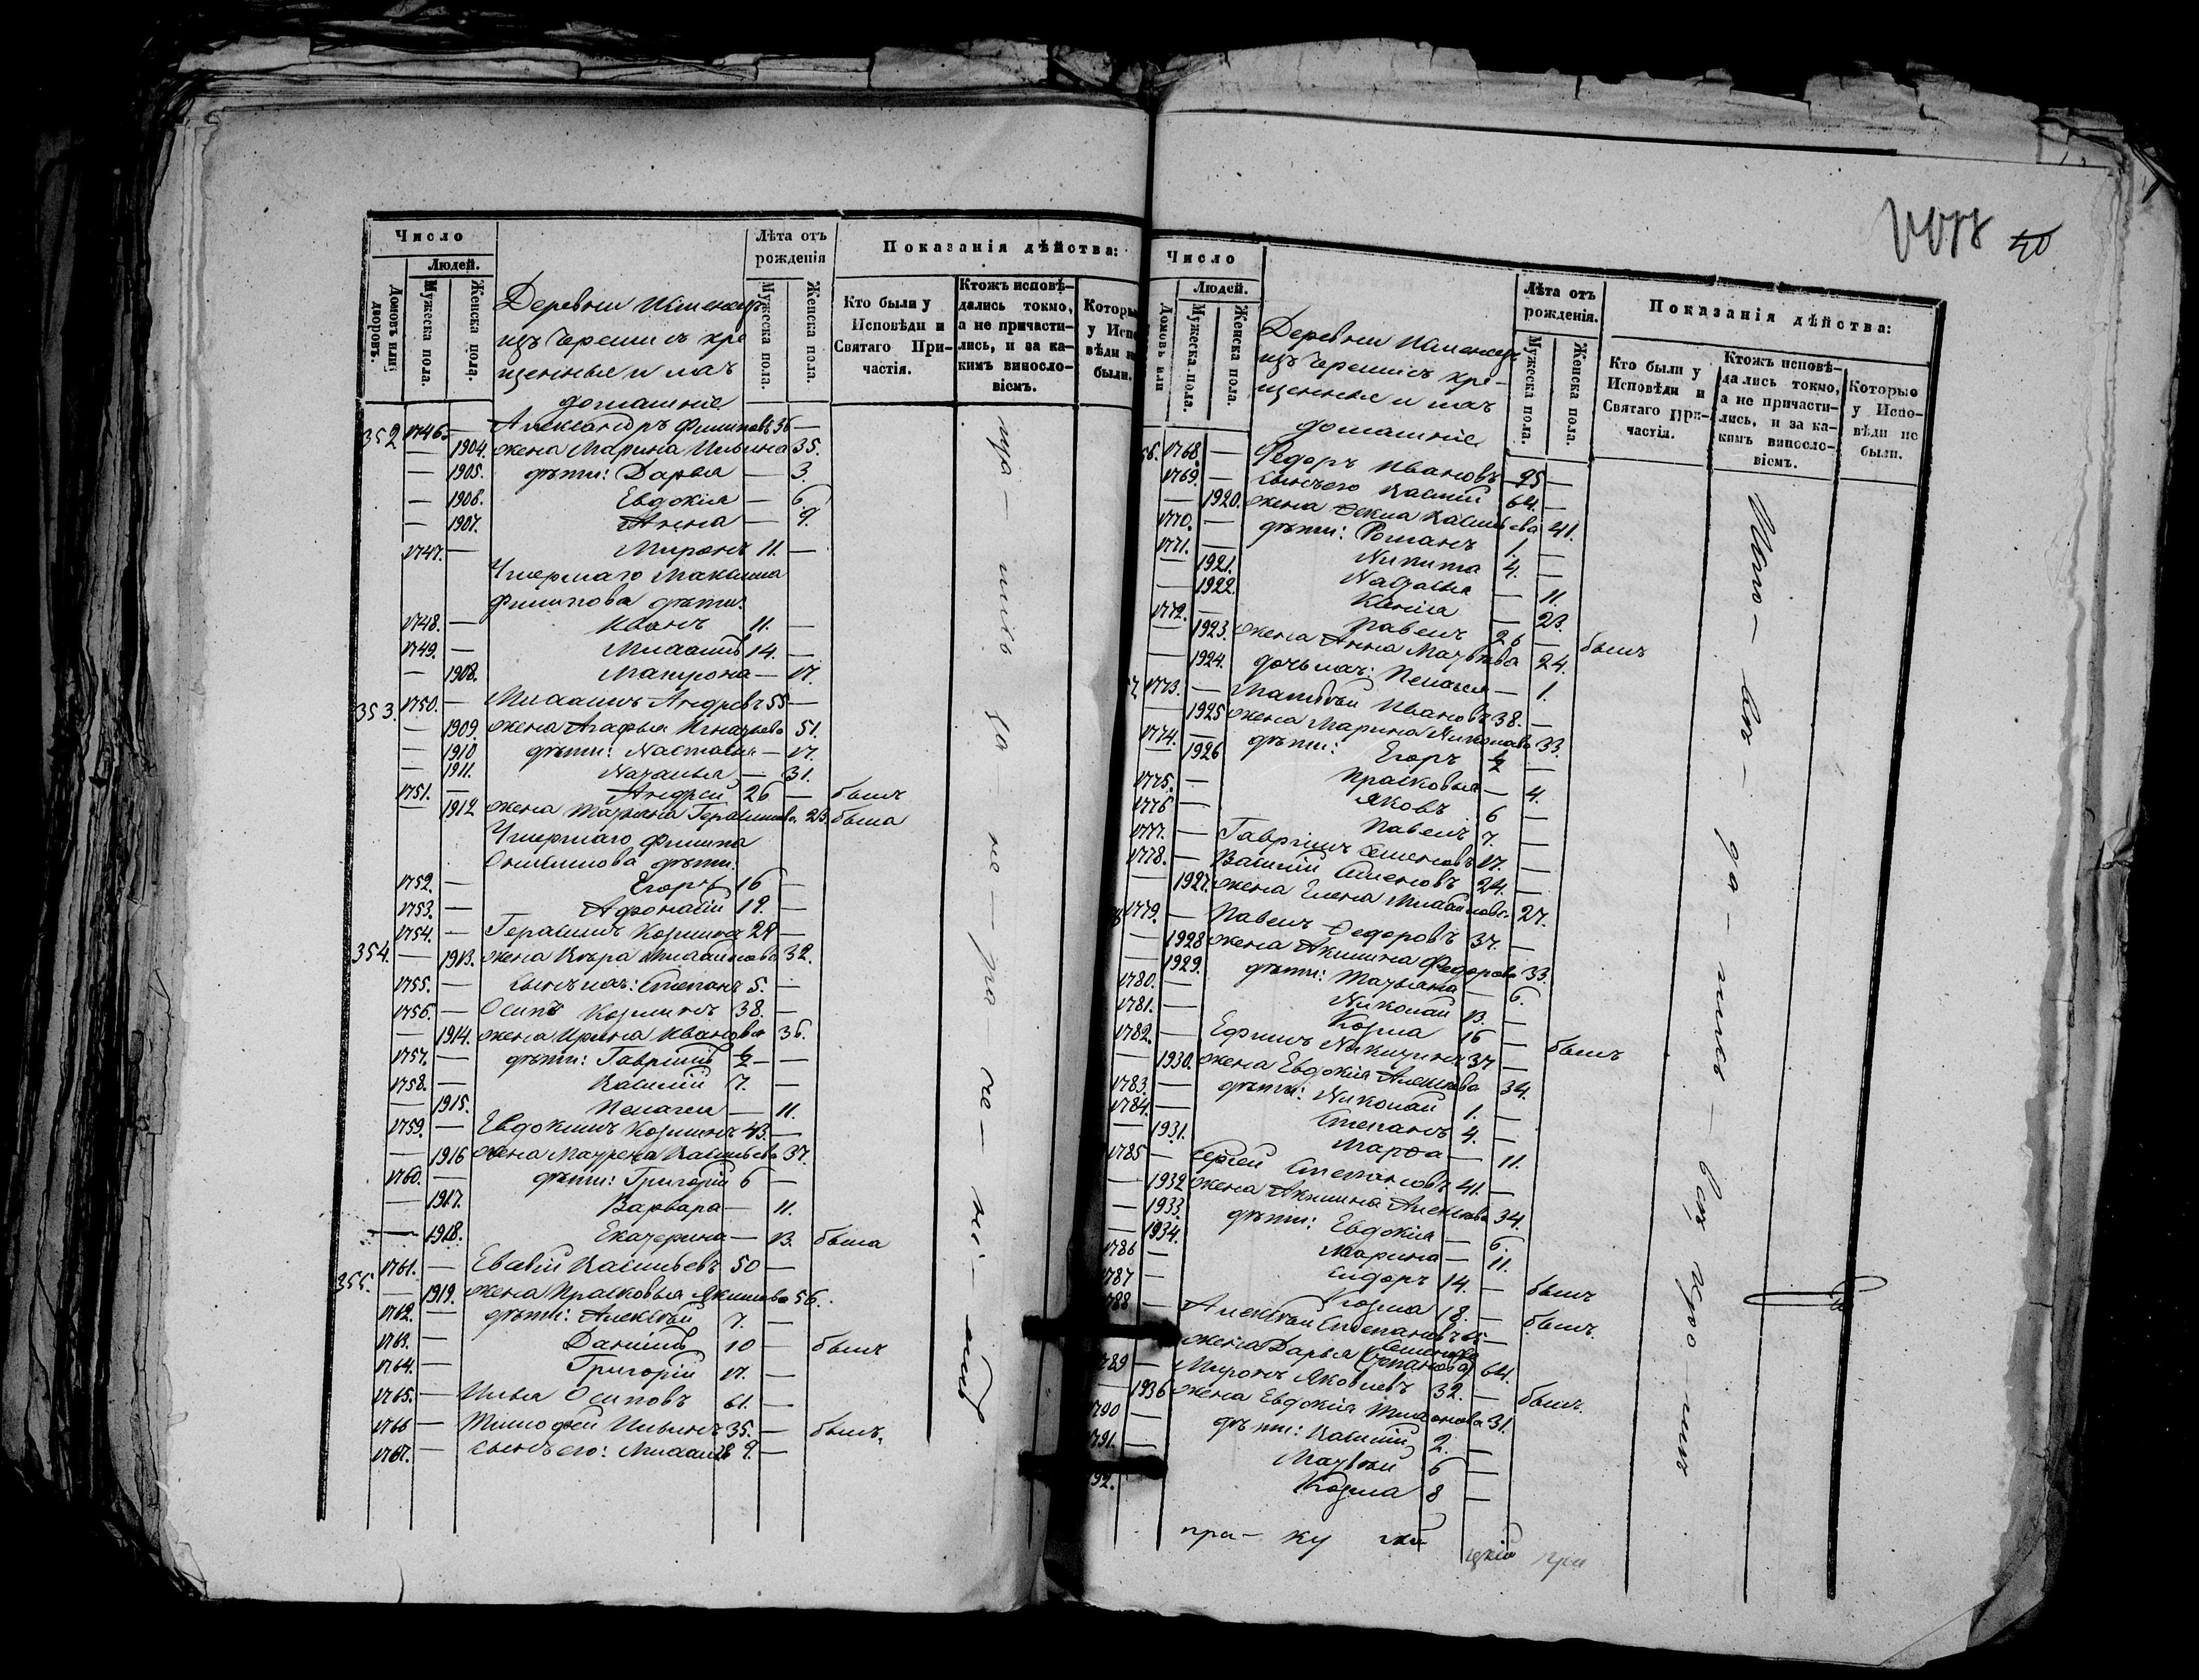 Число
Людей.
Домовъ или дворовъ.
Мужеска пола.
Женска пола.
Деревни
изъ Черемисъ кре
щенныя и ихъ
домашніе
Лѣта отъ рожденія
Мужеска пола.
Женска пола.
Показанія дѣйства:
Кто были у Исповѣди и Святаго Причастія.
Ктожъ исповѣдались токмо, а не причастились, и за какимъ винословіемъ.
Которы у Испо вѣди н были.
352 1746 — Александръ Филиповъ 36 —
— 1904. жена Марина Ильина 35.
— 1905. дѣти: Дарья — 3.
— 1906. Евдокія — 6
— 1907. Анна — 9.
1747. — Миронъ 11. —
Умершаго Максима
Филипова дѣти:
1748. — Иванъ 11. —
1749. — Михаилъ 14. —
— 1908. Матрона — 17.
353. 1750. — Михаилъ Андреевъ 55 —
— 1909. жена Агафья Игнатьева 51.
— 1910 дѣти: Настасья — 17.
— 1911. Наталья — 31.
1751. — Андрей 26 — былъ
— 1912 жена Татьяна Герасимова 23. была
Умершаго Филипа
Онисимова дѣти:
1752. — Егоръ 16 —
1753. — Афонасій 19. —
354. 1754. — Герасимъ Козминъ 29 —
— 1913. жена Вѣра Михайлова 32.
1755. — сынъ ихъ: Степанъ 5. —
1756. — Осипъ Козминъ 38. —
— 1914. жена Ирина Иванова 36.
1757. — дѣти: Гавріилъ ½ —
1758. — Василій 7. —
— 1915. Пелагея — 11.
1759. — Евдокимъ Козминъ 43. —
— 1916 жена Маурена Васильева 37.
1760. — дѣти: Григорій 6 —
— 1917. Варвара — 11.
— 1918. Екатерина — 13. была
355. 1761. — Евсевій Васильевъ 50 —
— 1919. жена Прасковья Якимова 56.
1762. — дѣти: Алексѣй 7. —
1763. — Даніилъ 10 — былъ
1764. — Григорій 17. —
1765. — Илья Осиповъ 61. —
1766 — Тимофей Ильинъ 35. — былъ.
1767. — сынъ его: Михаилъ 9. —
40
Число
Людей.
Домовъ или
Мужеска пола.
Женска пола.
Деревни
изъ Черемисъ кре-
щенныя и ихъ
домашніе
Лѣта отъ рожденія.
Мужеска пола.
Женска пола.
Показанія дѣйства:
Кто были у Исповѣди и Святаго Причастія.
Ктожъ исповѣдались токмо, а не причастились, и за какимъ винословіемъ.
Которые у Исповѣди не были.
56. 1768. — Федоръ Ивановъ 95 —
1769. — сынъ его Василій 64. —
— 1920. жена Фекла Васильева 41.
1770. — дѣти: Романъ 1. —
1771. — Никита 4. —
— 1921. Наталья — 11.
— 1922. Ксенія — 23.
1772. — Павелъ 26 — былъ
— 1923. жена Анна Матвѣева 24.
— 1924. дочь ихъ: Пелагея — 1.
1773. — Матвѣй Ивановъ 38. —
— 1925 жена Марина Николаева 33.
1774. — дѣти: Егоръ ½ —
— 1926 Прасковья — 4.
1775. — Яковъ 6 —
1776 — Павелъ 7. —
1777. — Гавріилъ Семеновъ 17. —
1778. — Василій Семеновъ 24. —
— 1927. жена Елена Михайлова 27.
1779. — Павелъ Федоровъ 37. —
— 1928 жена Акилина Федорова 33.
— 1929. дѣти: Татьяна — 6.
1780. — Николай 13. —
1781. — Козма 16 — былъ
1782. — Ефимъ Никитинъ 37 —
— 1930. жена Евдокія Алексѣева 34.
1783. — дѣти: Николай 1. —
1784. — Степанъ 4. —
— 1931. Марфа — 11.
1785 — Сергей Степановъ 41. —
— 1932 жена Акилина Алексѣева 34.
— 1933. дѣти: Евдокія — 6.
— 1934. Марина — 11.
1786 — Сидоръ 14. — былъ
1787 — Козма 18. — былъ.
1788 — Алексѣй Степановъ —
жена Дарья Семенова (Степанова) 64.
1789 — Миронъ Яковлевъ 32. — былъ.
— 1936 жена Евдокія 31.
1790 — дѣти: Василій 2. —
1791. — Матвѣй 6 —
92. — Козма 8 —
пра— ку